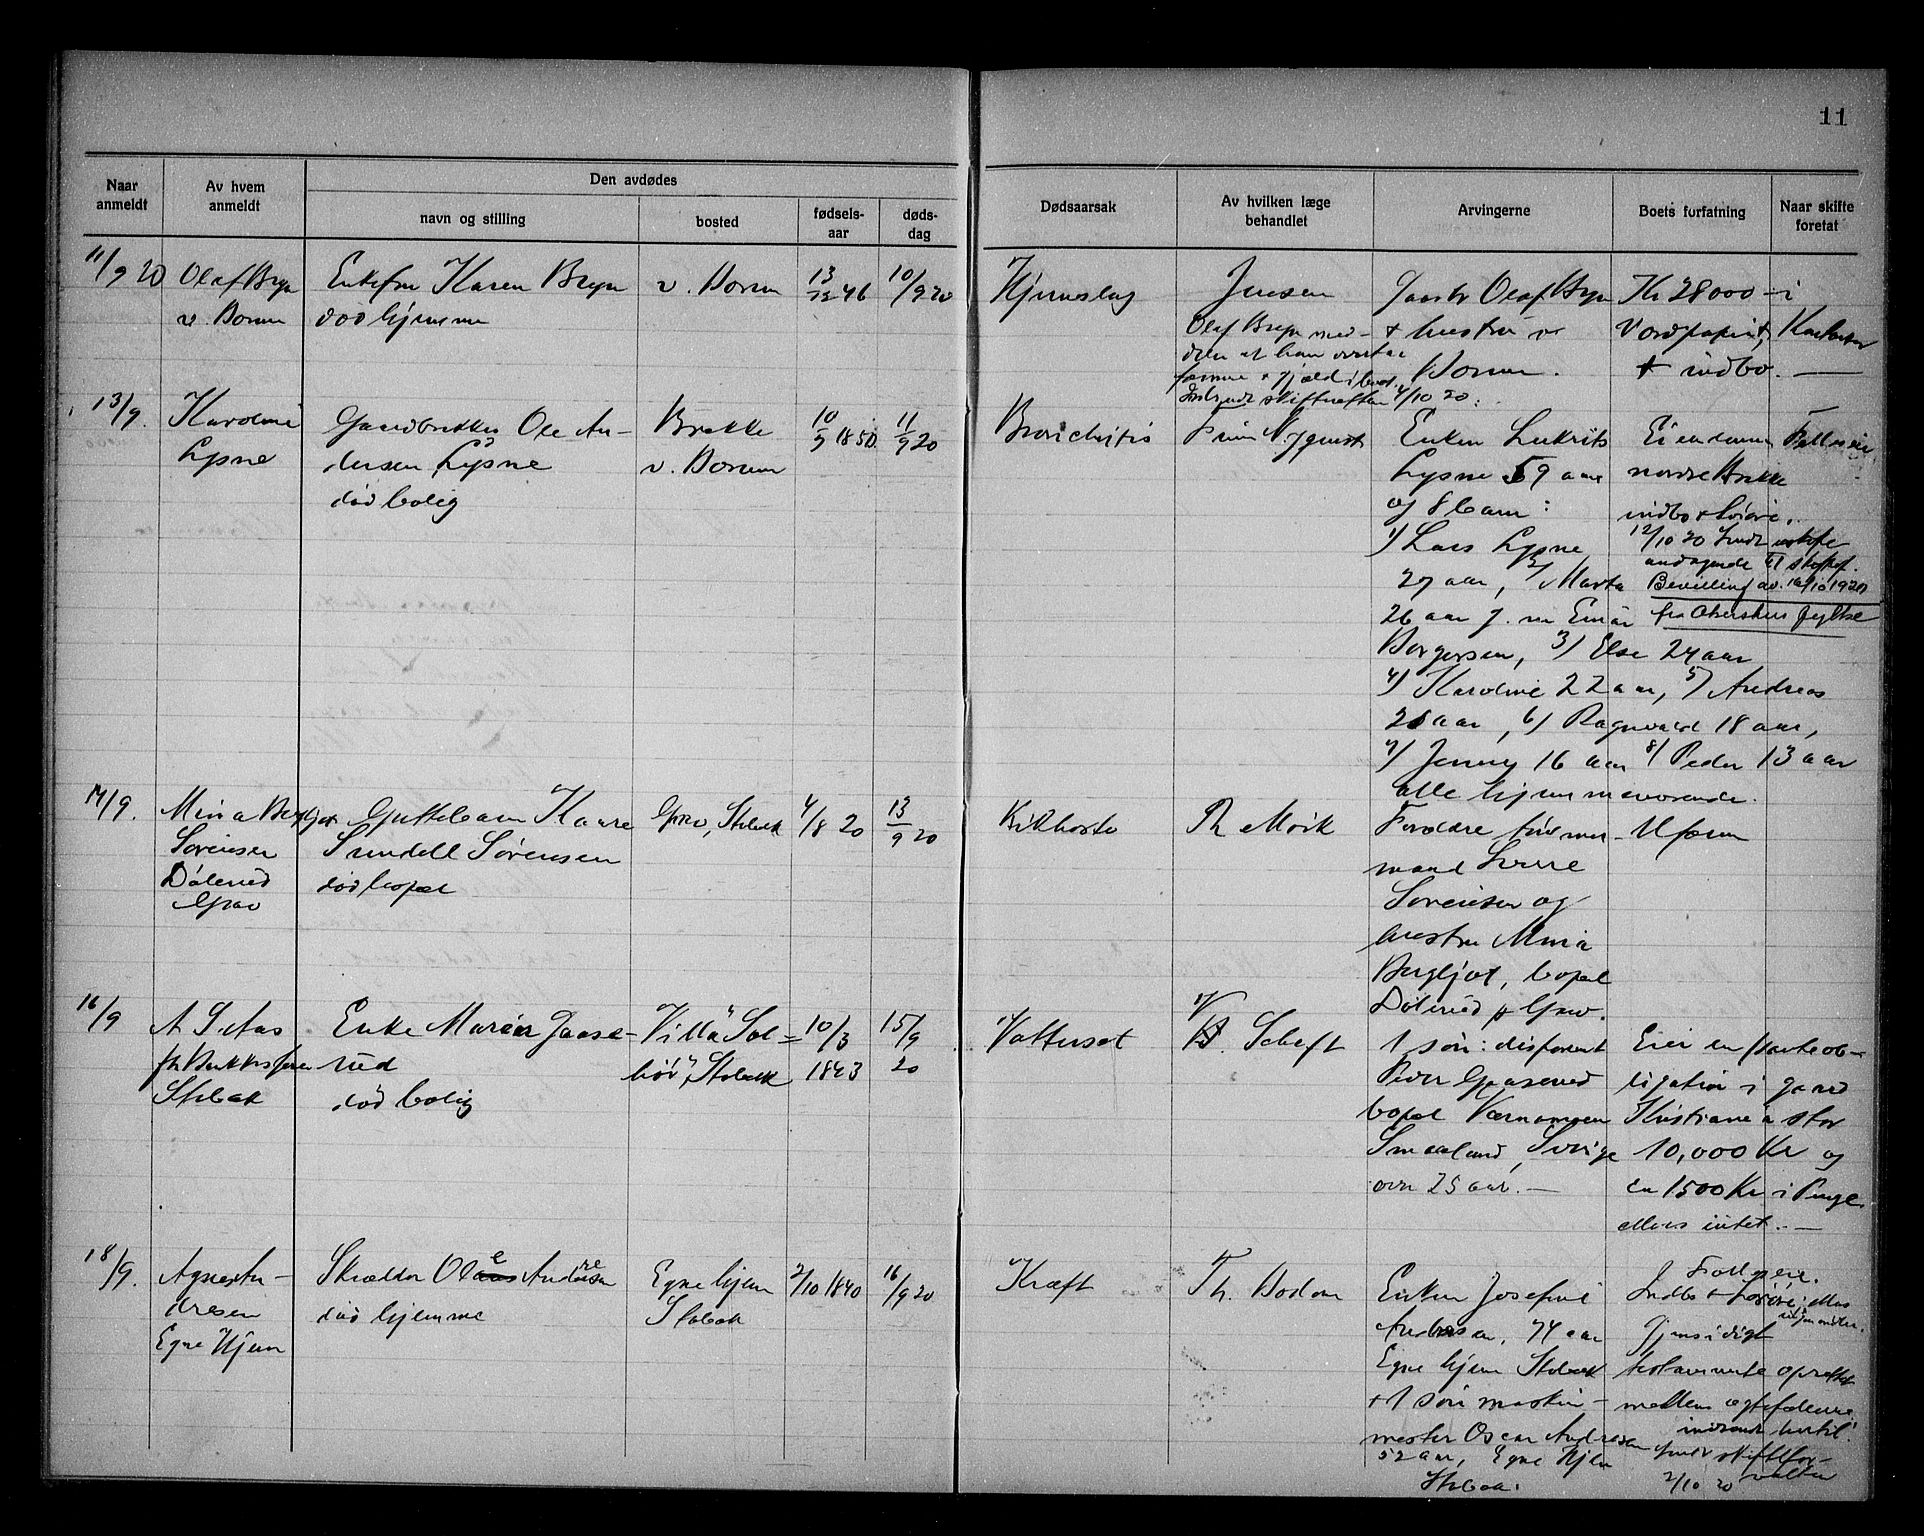 11
Naar anmeldt
Av hvem anmeldt
Den avdødes
navn og stilling
bosted
fødsels-aar
døds-dag
Dødsaarsak
Av hvilken læge behandlet
Arvingerne
Boets forfatning
Naar skifte foretat
11/9 20
Olaf Bryn
v. Bærum
Enkefru Karen Bryn
død hjemme
v. Bærum
13/12 46
10/9 20
Hjerneslag
Jensen
Olaf Bryn med-
deler at han overtar
formue + gjæld i boet.
skifteretten 4/10 20.
Gaardbr Olaf Bryn
+ hustru v.
Bærum.
Kr 28000 i
Værdpapirer
+ indbo.
13/9.
Karoline
Lysne
Gaardbruker Ole An-
dersen Lysne
død bolig
Brekke
v. Bærum
10/9 1850.
11/9 20
Bronchitis
Enken
Lysne 59 aar
og 8 barn:
1) Lars Lysne
27 aar, 2) Marta
26 aar g. m Einar
Borgersen, 3) Else 24 aar
4) Karoline 22 aar, 5) Andreas
aar, 6) Ragnvald 18 aar,
7) Jenny 16 aar 8) Peder 13 aar
alle hjemmeværende.
Eiendommen
nordre Brekke
indbo + løsøre.
12/10 20
andragende til
Bevilling av 1920
fra Akershus fylke
14/9.
Mina Bergljot
Sørensen
Dølerud
Grav
Guttebarn Kaare
Sundell Sørensen
død bopæl
Grav, Stabæk
4/8 20
13/9 20
Kikhoste
Th Mørk
Forældre tømmer-
mand
Sørensen og
hustru Mina
Bergljot, bopæl
Dølerud pr Grav.
Uform
16/9
A S Aas
Stabæk
Enke Maren Gaase-
rud
død bolig
Villa "Sol-
hør", Stabæk
10/3
1843
15/9
20
Vattersot
Scheft
1 søn: disponent
Peder Gaaserud
bopæl Værnamoen
Smaaland, Sverige
over 25 aar. —
Eier en panteob-
ligation i gaard
Kristiania stor
10,000 Kr og
ca 1500 Kr i Penge
ellers intet. —
18/9.
Agnes An-
dresen
Egne Hjem
Skrædder Ole Andresen
død hjemme
Egne hjem
Stabæk
2/10 1840
16/9 20
Kræft
Th. Bodom
Enken Josefine
Andresen, 74 aar
Egne hjem Stabæk
+ 1 søn maskin-
mester Oscar Andresen
52 aar, Egne Hjem
Stabæk.
Indbo + løsøre; ellers
Gjensidigt
testamente oprettet
mellem egtefællerne
2/10 20